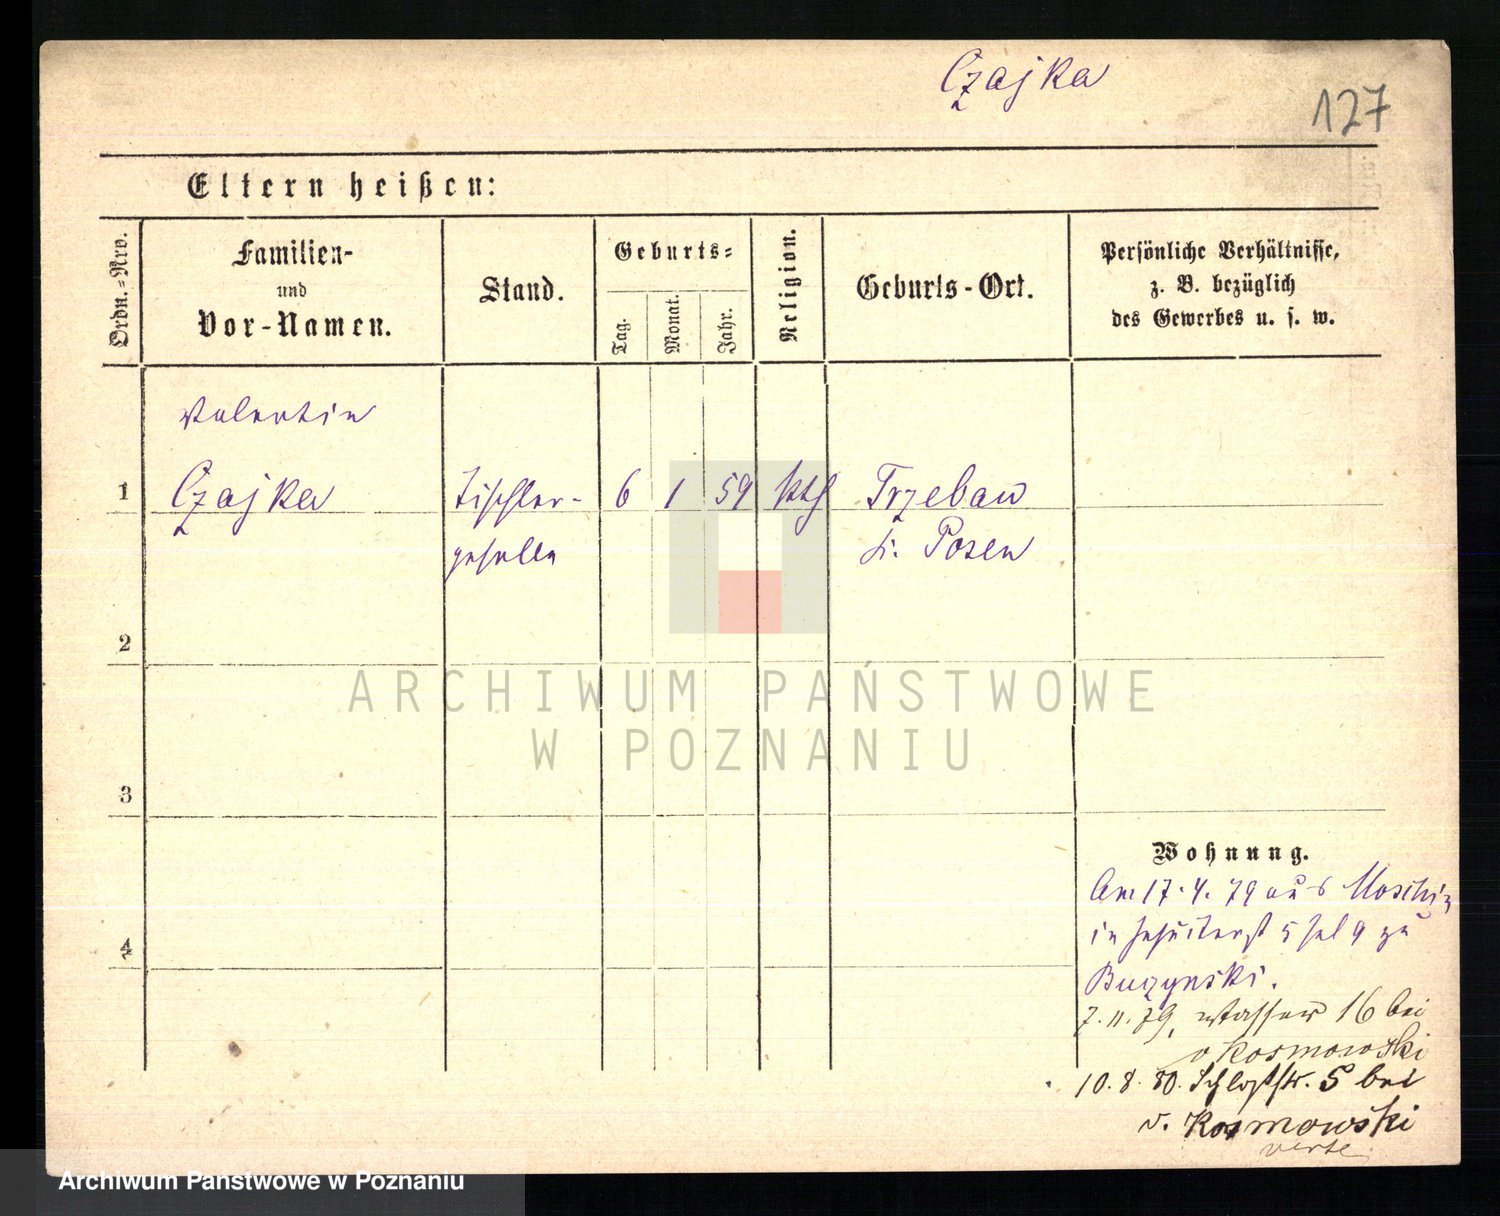 Czajka
127
Eltern heißen:
Ordn.-Nro.
Familien-
und
Vor-Namen.
Stand.
Geburts-
Tag.
Monat.
Jahr.
Religion.
Geburts-Ort.
Persönliche Verhältnisse,
z. B. bezüglich
des Gewerbes u. s. w.
Valentin
1 Czajka Tischler- 6 1 59 kth Trzebaw
geselle Kr. Posen
2
3
4
Wohnung.
Am 17.4.79 aus Moschin
in Jesuiterst 5 bei 9 zu
Buzynski.
7.11.79, Wasser 16 bei
v Kosmowski
10.8.80. Schloßstr. 5 bei
v. Kosmowski
verte
ARCHIWUM PAŃSTWOWE
W POZNANIU
Archiwum Państwowe w Poznaniu